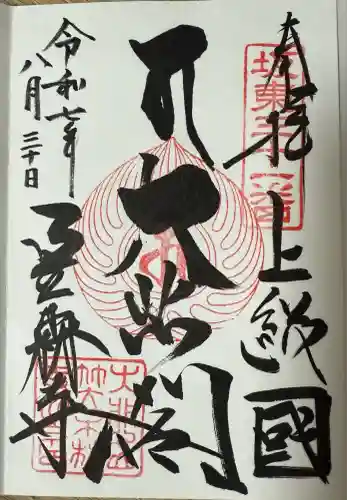 奉拝
坂東三十一番
上総國
大悲閣
令和七年
八月三十日
笠森寺